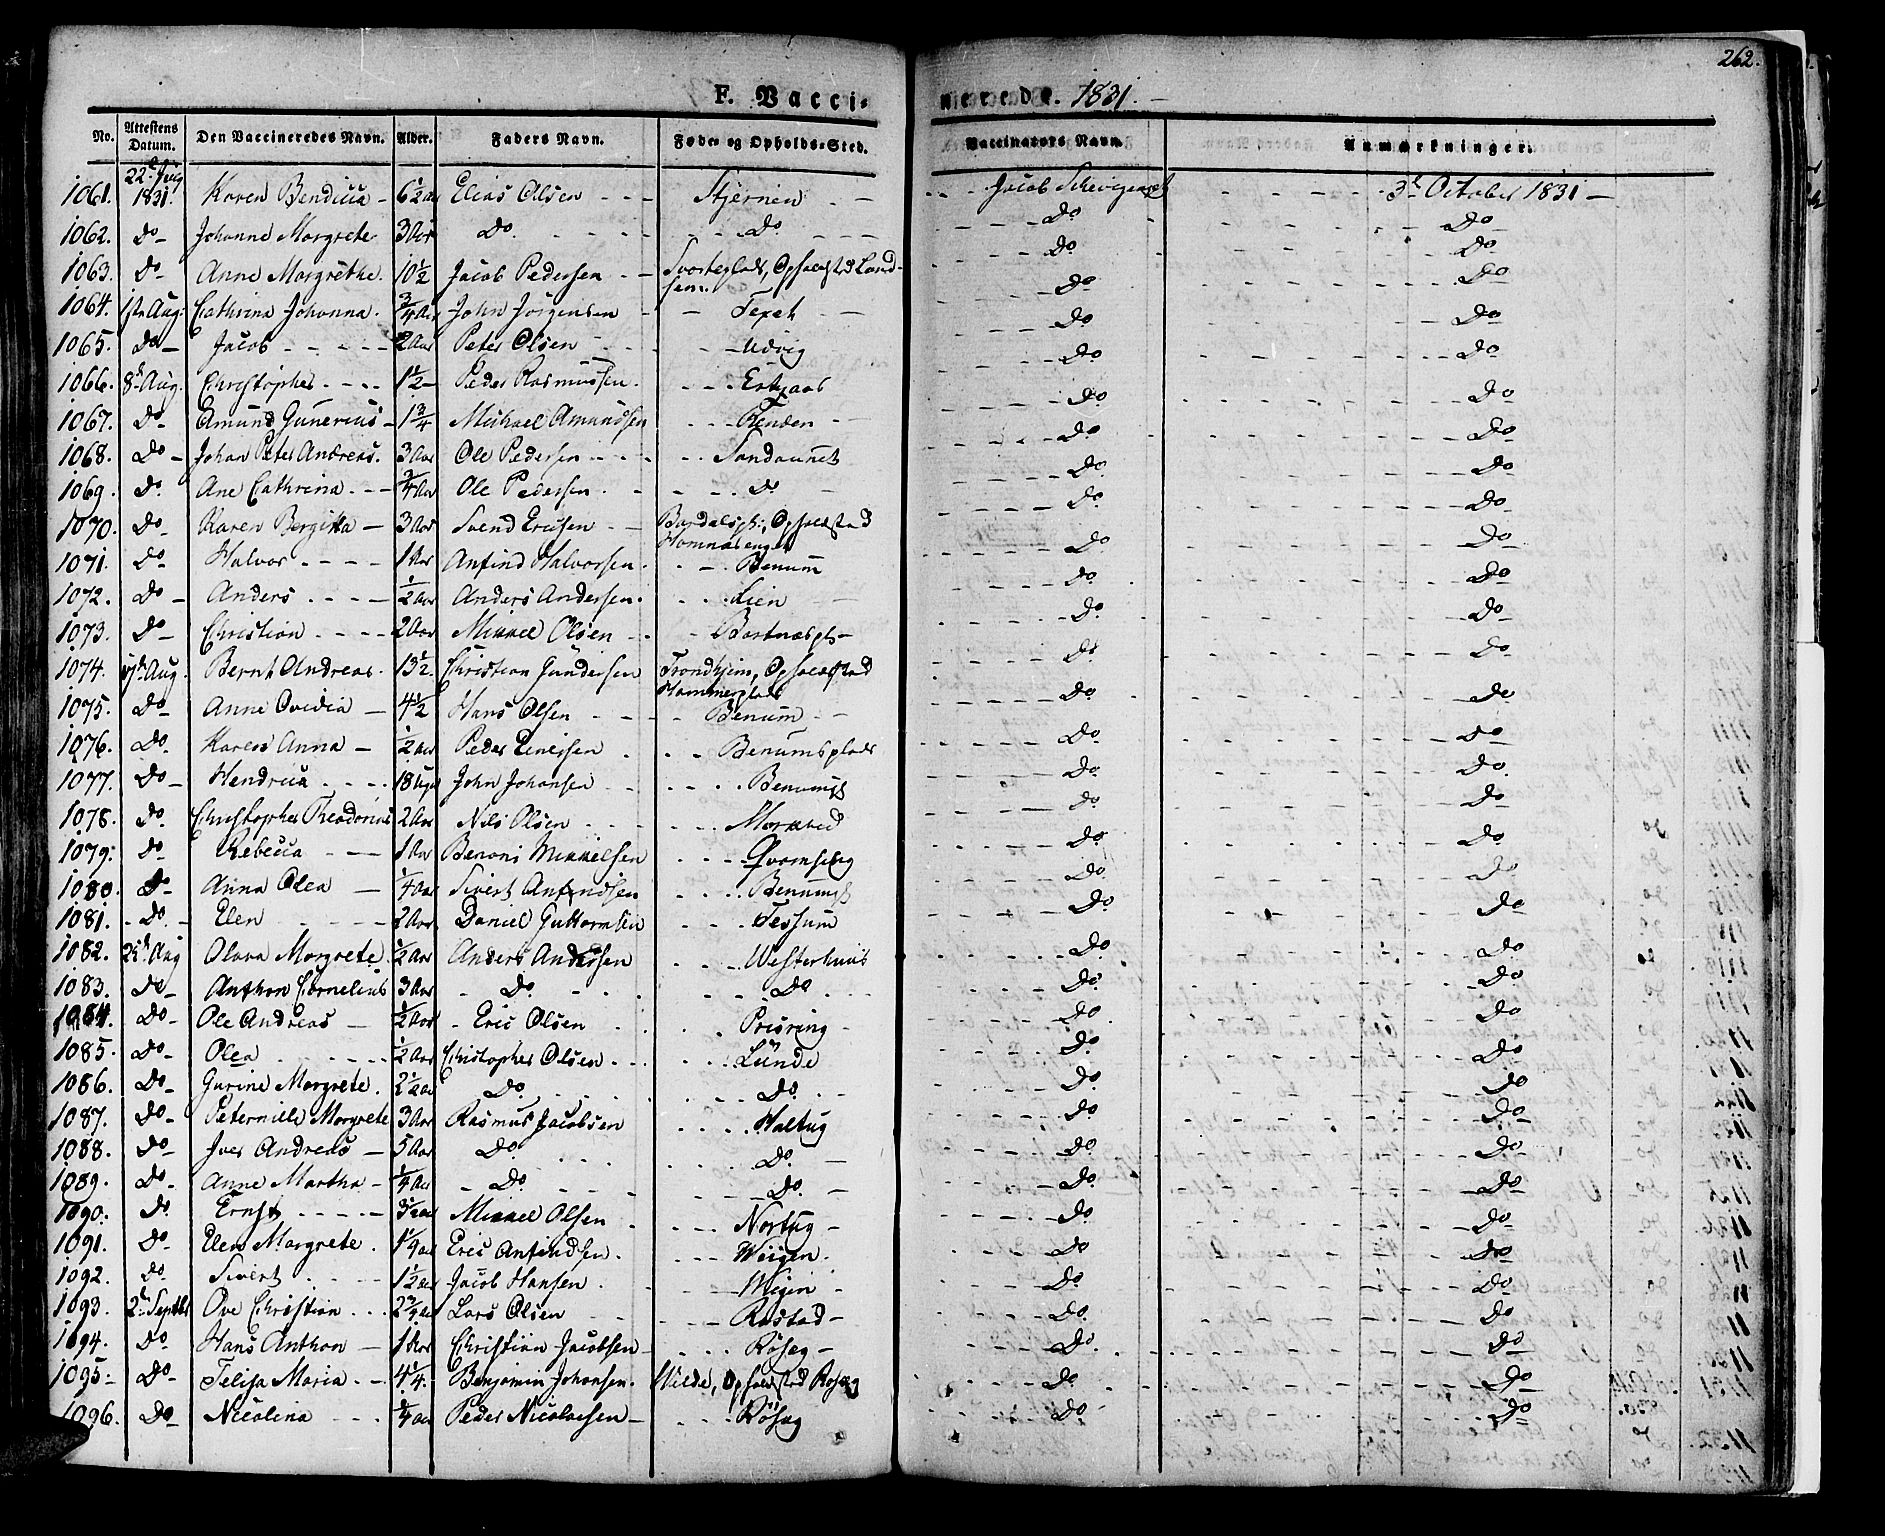 262.
F. Vacci- nerede. 1831.
No. Attestens Datum. Den Vaccineredes Navn. Alder. Faders Navn. Føde- og Opholds-Sted. Vaccinateurs Navn. Anmærkninger.
1061. 22de July 1831. Karen Bendicta 6 1/2 aar Elias Olsen Stjernen Jacob 3de October 1831
1062. Do Johanna Margrete 3 Aar Do. Do. Do Do
1063. Do Anne Margrethe. 10 1/2 Jacob Pedersen Do Do
1064. 1ste Aug: Cathrina Johanna. 3/4 Aar John Jørgensen Do Do
1065. Do Jacob 2 Aar Peter Olsen Udvig Do Do
1066. 8de Aug. Christopher 1 1/2 Peder Rasmussen. Do Do
1067. Do Amund Gunerius 1 3/4 Michael Amundsen Renden Do Do
1068. Do Johan Peter Andreas. 3 Aar Ole Pedersen Sandaunet Do Do
1069. Do. Ane Cathrina 3/4 Aar Ole Pedersen. Do Do Do
1070. Do Karen Bergitta 3 Aar Svend Ericsen Do Do
1071. Do Halvor 1 Aar Anfind Halvorsen. Benum Do Do
1072. Do Anders 1/2 Aar Anders Andersen. Lien Do Do
1073. Do Christian 2 Aar Mikkel Olsen Do Do
1074. 17de Aug. Bernt Andreas. 13 1/2. Christian Gundersen Trondhjem, Opholdsted Hammerplads Do Do
1075. Do Anne Ovidia 4 1/2 Hans Olsen Benum Do Do
1076. Do Karen Anna 1/2 aar Peder Benumsplads Do Do
1077. Do Hendrica 18 Uger John Johansen Do Do
1078. Do. Christopher Theodorius 2 Aar Nils Olsen Markved Do Do
1079. Do Rebecca 1 Aar Benoni Mikkelsen Do Do
1080. Do Anna Olea 1/4 Aar Sivert Anfindsen Do Do
1081. Do. Elen 2 Aar Daniel Guttormsen Tessum Do Do
1082. 25de Aug Olava Margrete. 1/2 Aar Anders Andersen Westerhuus Do Do
1083. Do Anthon Cornelius 3 Aar Do. Do. Do Do
1084. Do Ole Andreas 1/2 Aar Eric Olsen Prisring Do Do
1085. Do Olea 1/2 Aar Christopher Olsen Lunde Do Do
1086. Do Gurine Margrete. 2 1/2 aar Do. Do. Do Do
1087. Do Peternille Margrete 3 Aar Rasmus Jacobsen Haltug Do Do
1088. Do Iver Andreas 5 Aar Do Do. Do Do
1089. Do Anne Martha 1/4 Aar Do. Do. Do Do
1090. Do Ernst 3 1/2 aar Mikkel Olsen Nortug Do Do
1091. Do Elen Margrete. Eric Anfindsen. Wiigen. Do Do
1092. Do. Sivert 1 1/2 aar Jacob Hansen. Wigen Do Do
1093. 2de Septbr Ove Christian 2 3/4 Aar Lars Olsen Rostad Do Do
1094. Do Hans Anthon 1 Aar Christian Jacobsen Røseg Do Do
1095. Do Felisa Maria 4 1/4. Benjamin Johansen. Wilde, Opholdsted Røseg Do Do
1096. Do Nicolina 3/4 Aar Peder Nicolaesen Røseg Do Do